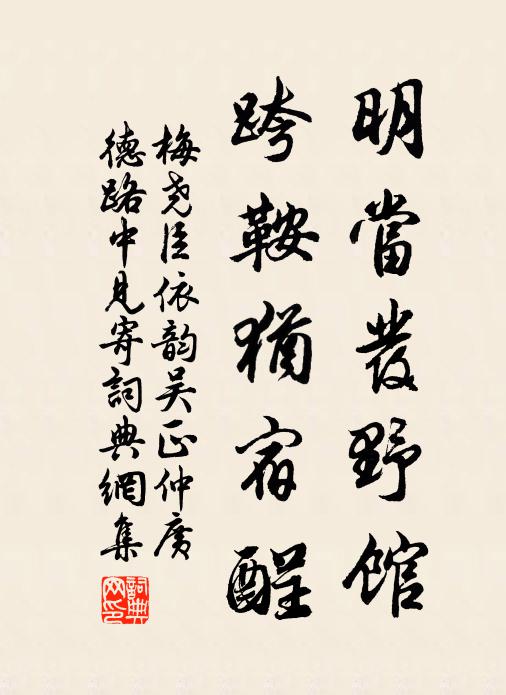 明當發野馆
跨鞍猶宿酲
梅尧臣依韵吴正仲廣
德路中見寄詞典網集
詞典
网印